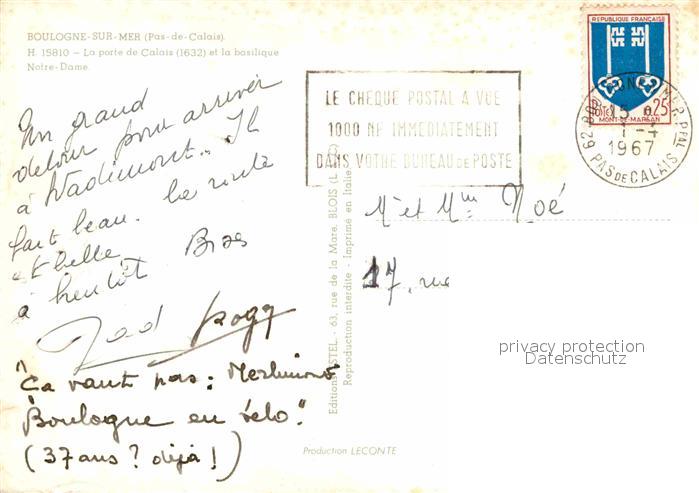 BOULOGNE-SUR-MER (Pas-de-Calais).
H. 15810 - La porte de Calais (1632) et la basilique
Notre-Dame.
Un grand
détour pour arriver
à Wadimont.. Il
fait beau. La route
est belle
à bientôt Bises
"Ca vaut pas: Merlimont
Boulogne en vélo."
(37 ans ? déjà !)
Production LECONTE
Reproduction interdite - Imprimé en Italie
REPUBLIQUE FRANÇAISE
0,25
MONT-DE-MARSAN
LE CHEQUE POSTAL A VUE
1000 NF IMMEDIATEMENT
DANS VOTRE BUREAU DE POSTE
1-4
1967
62 PAS DE CALAIS
Mr et Mme Noé
17, rue
privacy protection
Datenschutz